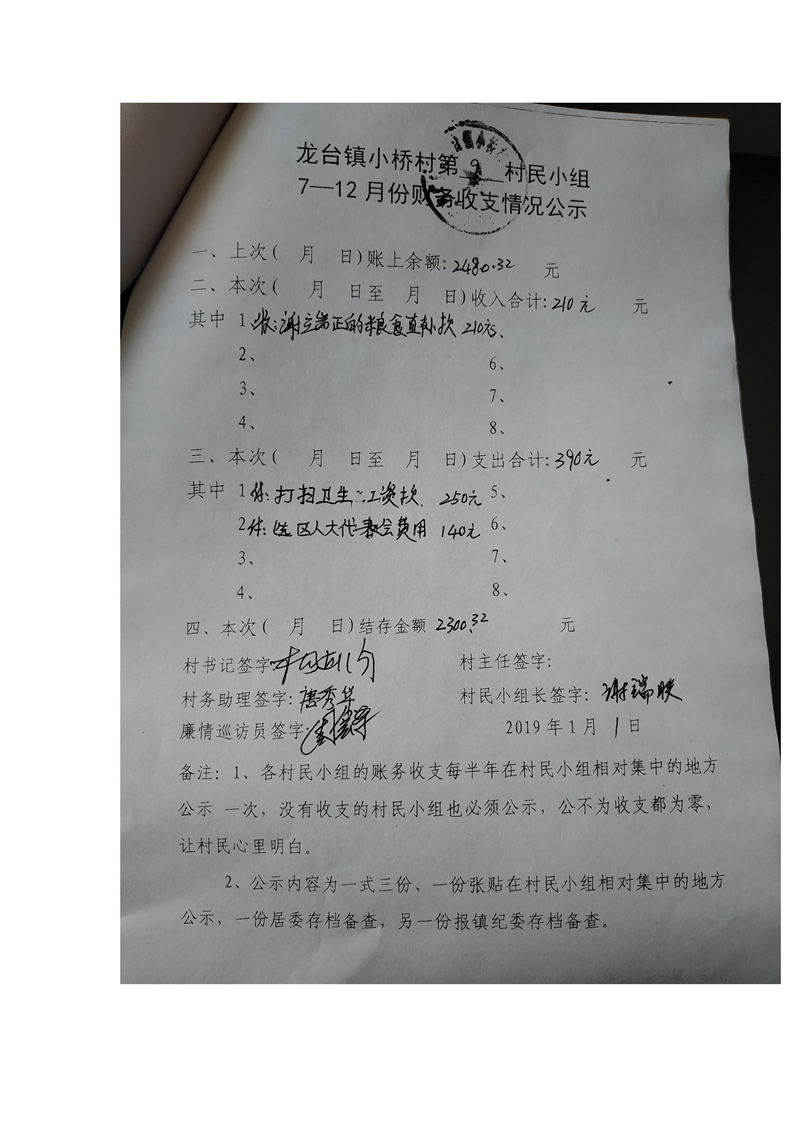 龙台镇小桥村第 9 村民小组
7—12月份账务收支情况公示
一、上次( 月 日)账上余额:2480.32 元
二、本次( 月 日至 月 日)收入合计:210元 元
其中 1 收:谢立端正的粮食直补款 210元、
2、 6、
3、 7、
4、 8、
三、本次( 月 日至 月 日)支出合计:390元 元
其中 1 付:打扫卫生工资款. 250元 5、
2 付:选区人大代表会费用 140元 6、
3、 7、
4、 8、
四、本次( 月 日)结存金额 2300.32 元
村书记签字: 村主任签字:
村务助理签字:唐秀华 村民小组长签字:谢瑞映
廉情巡访员签字: 2019年1月 1日
备注:1、各村民小组的账务收支每半年在村民小组相对集中的地方
公示 一次,没有收支的村民小组也必须公示,公不为收支都为零,
让村民心里明白。
2、公示内容为一式三份、一份张贴在村民小组相对集中的地方
公示,一份居委存档备查,另一份报镇纪委存档备查。